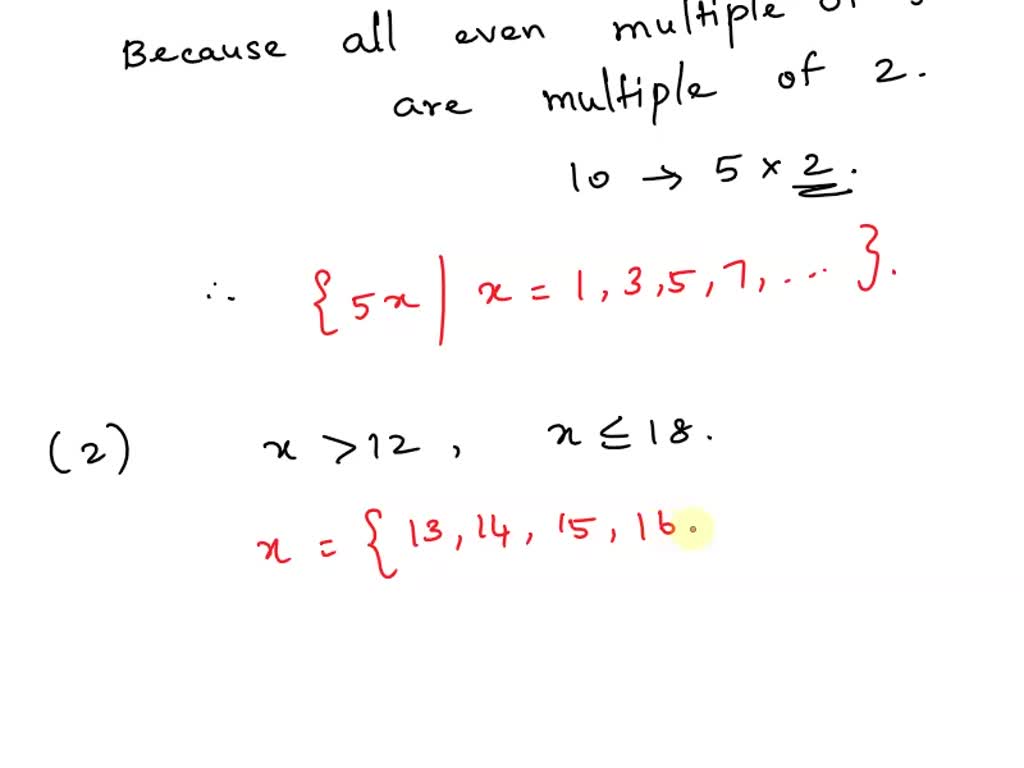 Because all even multiple of
are multiple of 2.
10 → 5 × 2.
∴ {5x | x = 1, 3, 5, 7, ... }.
(2) x > 12 , x ≤ 18.
x = { 13, 14, 15, 16